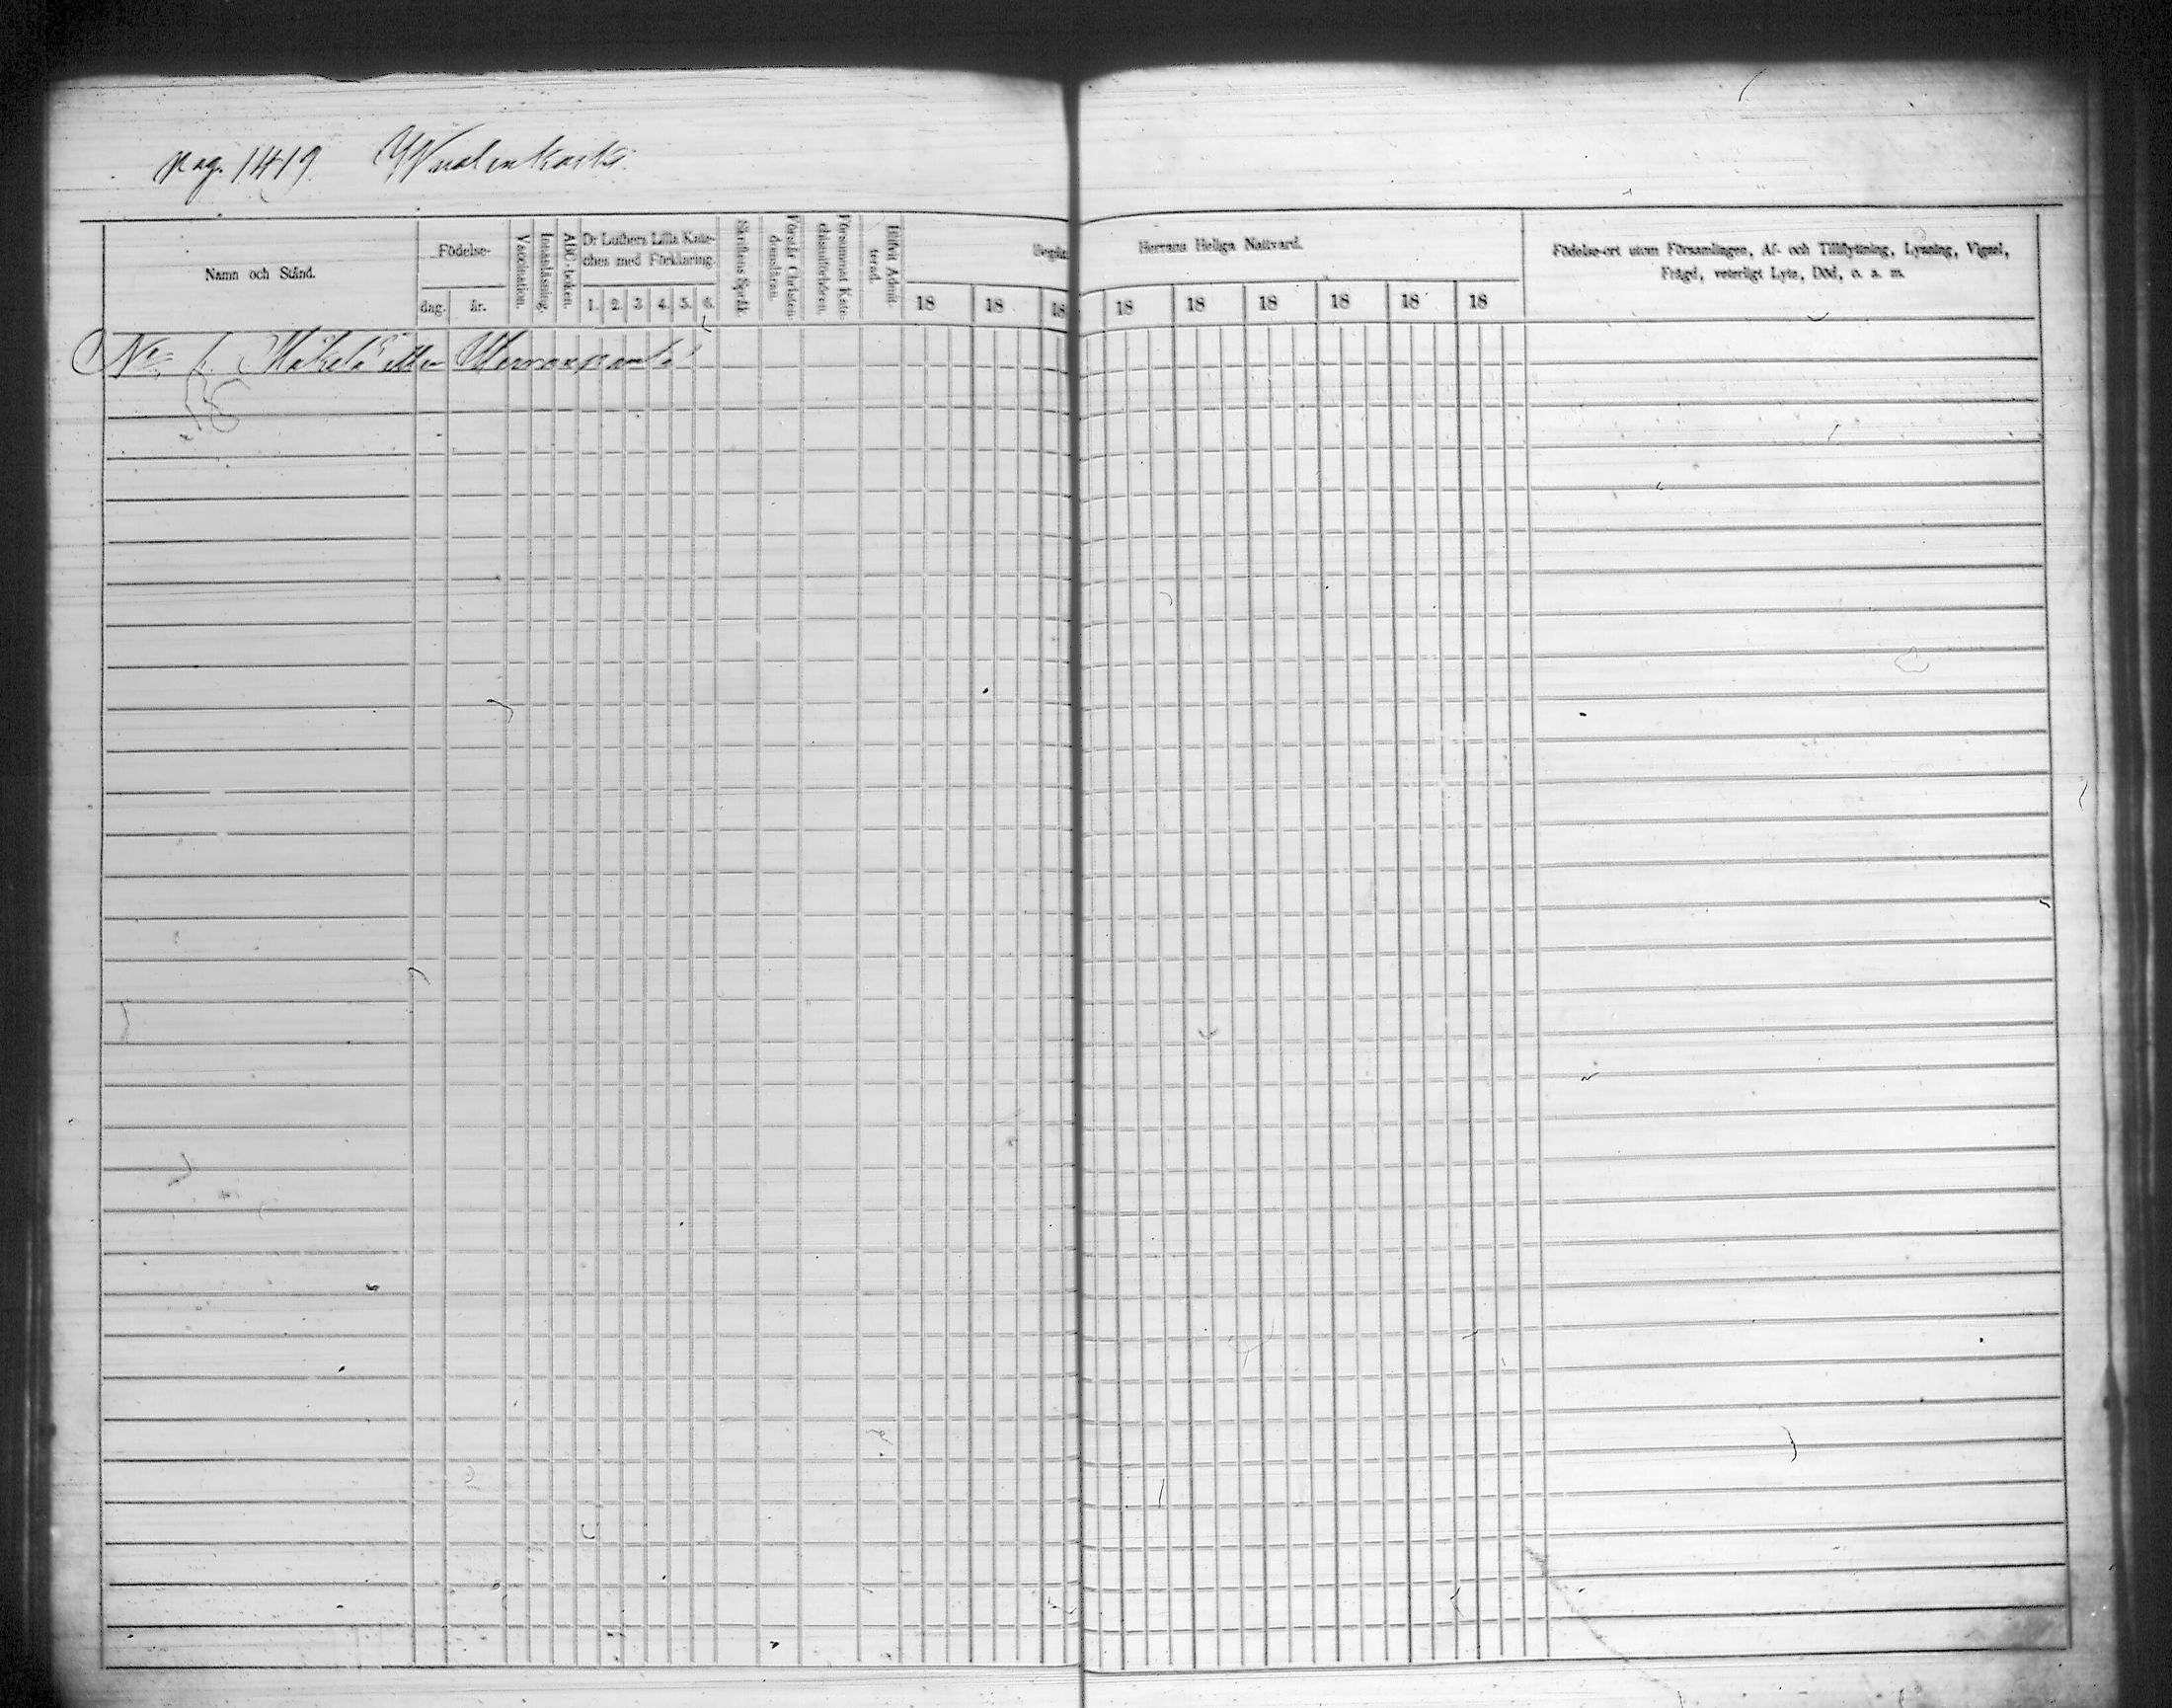 pag. 1419. Wuolenkoski.
Namn och Stånd.
Födelse-
dag.
år.
Vaccination.
Innanläsning.
ABC-boken.
Dr Luthers Lilla Kate-
ches med Förklaring.
1. 2. 3 4. 5. 6.
Skriftens Språk.
Förstår Christen-
domsläran.
Försummat Kate-
chismiförhören.
Blifvit Admit-
terad.
Begått Herrans Heliga Nattvard.
18 18 18 18 18 18 18 18 18
Födelse-ort utom Församlingen, Af- och Tillflyttning, Lysning, Vigsel,
Frägd, veterligt Lyte, Död, o. a. m.
No 1. Mäkelä eller